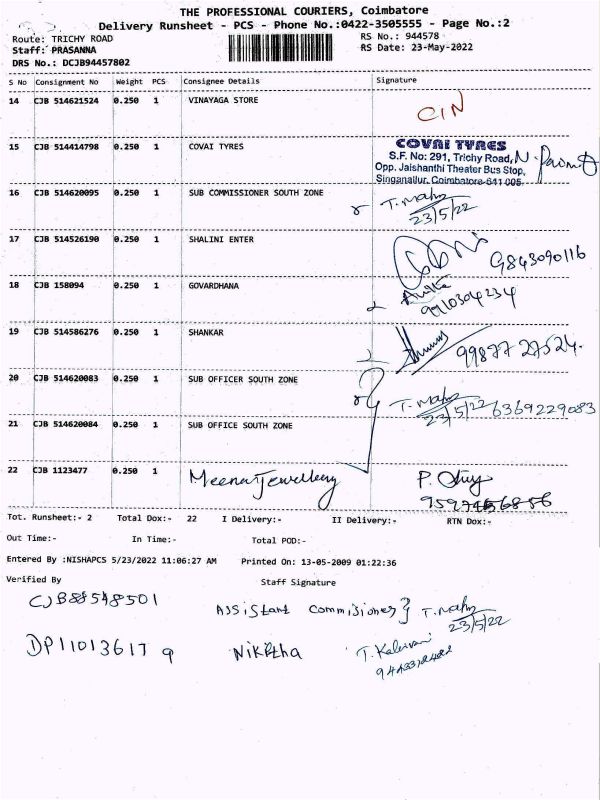 THE PROFESSIONAL COURIERS, Coimbatore
Delivery Runsheet - PCS - Phone No.:0422-3505555 - Page No.:2
Route: TRICHY ROAD RS No.: 944578
Staff: PRASANNA RS Date: 23-May-2022
DRS No.: DCJB94457802
S No Consignment No Weight PCS Consignee Details Signature
14 CJB 514621524 0.250 1 VINAYAGA STORE
CIN
15 CJB 514414798 0.250 1 COVAI TYRES
COVAI TYRES
S.F. No: 291, Trichy Road,
Opp. Jaishanthi Theater Bus Stop,
Singanallur, Coimbatore-641 005.
16 CJB 514620095 0.250 1 SUB COMMISSIONER SOUTH ZONE
23/5/22
17 CJB 514526190 0.250 1 SHALINI ENTER
9843090116
18 CJB 158094 0.250 1 GOVARDHANA
9910304234
19 CJB 514586276 0.250 1 SHANKAR
99877 27524.
20 CJB 514620083 0.250 1 SUB OFFICER SOUTH ZONE
23/5/22 6369229083
21 CJB 514620084 0.250 1 SUB OFFICE SOUTH ZONE
22 CJB 1123477 0.250 1 Meena Jewellery
Tot. Runsheet:- 2 Total Dox:- 22 I Delivery:- II Delivery:- RTN Dox:-
Out Time:- In Time:- Total POD:-
Entered By :NISHAPCS 5/23/2022 11:06:27 AM Printed On: 13-05-2009 01:22:36
Verified By Staff Signature
Assistant Commisioner
23/5/22
Nikitha